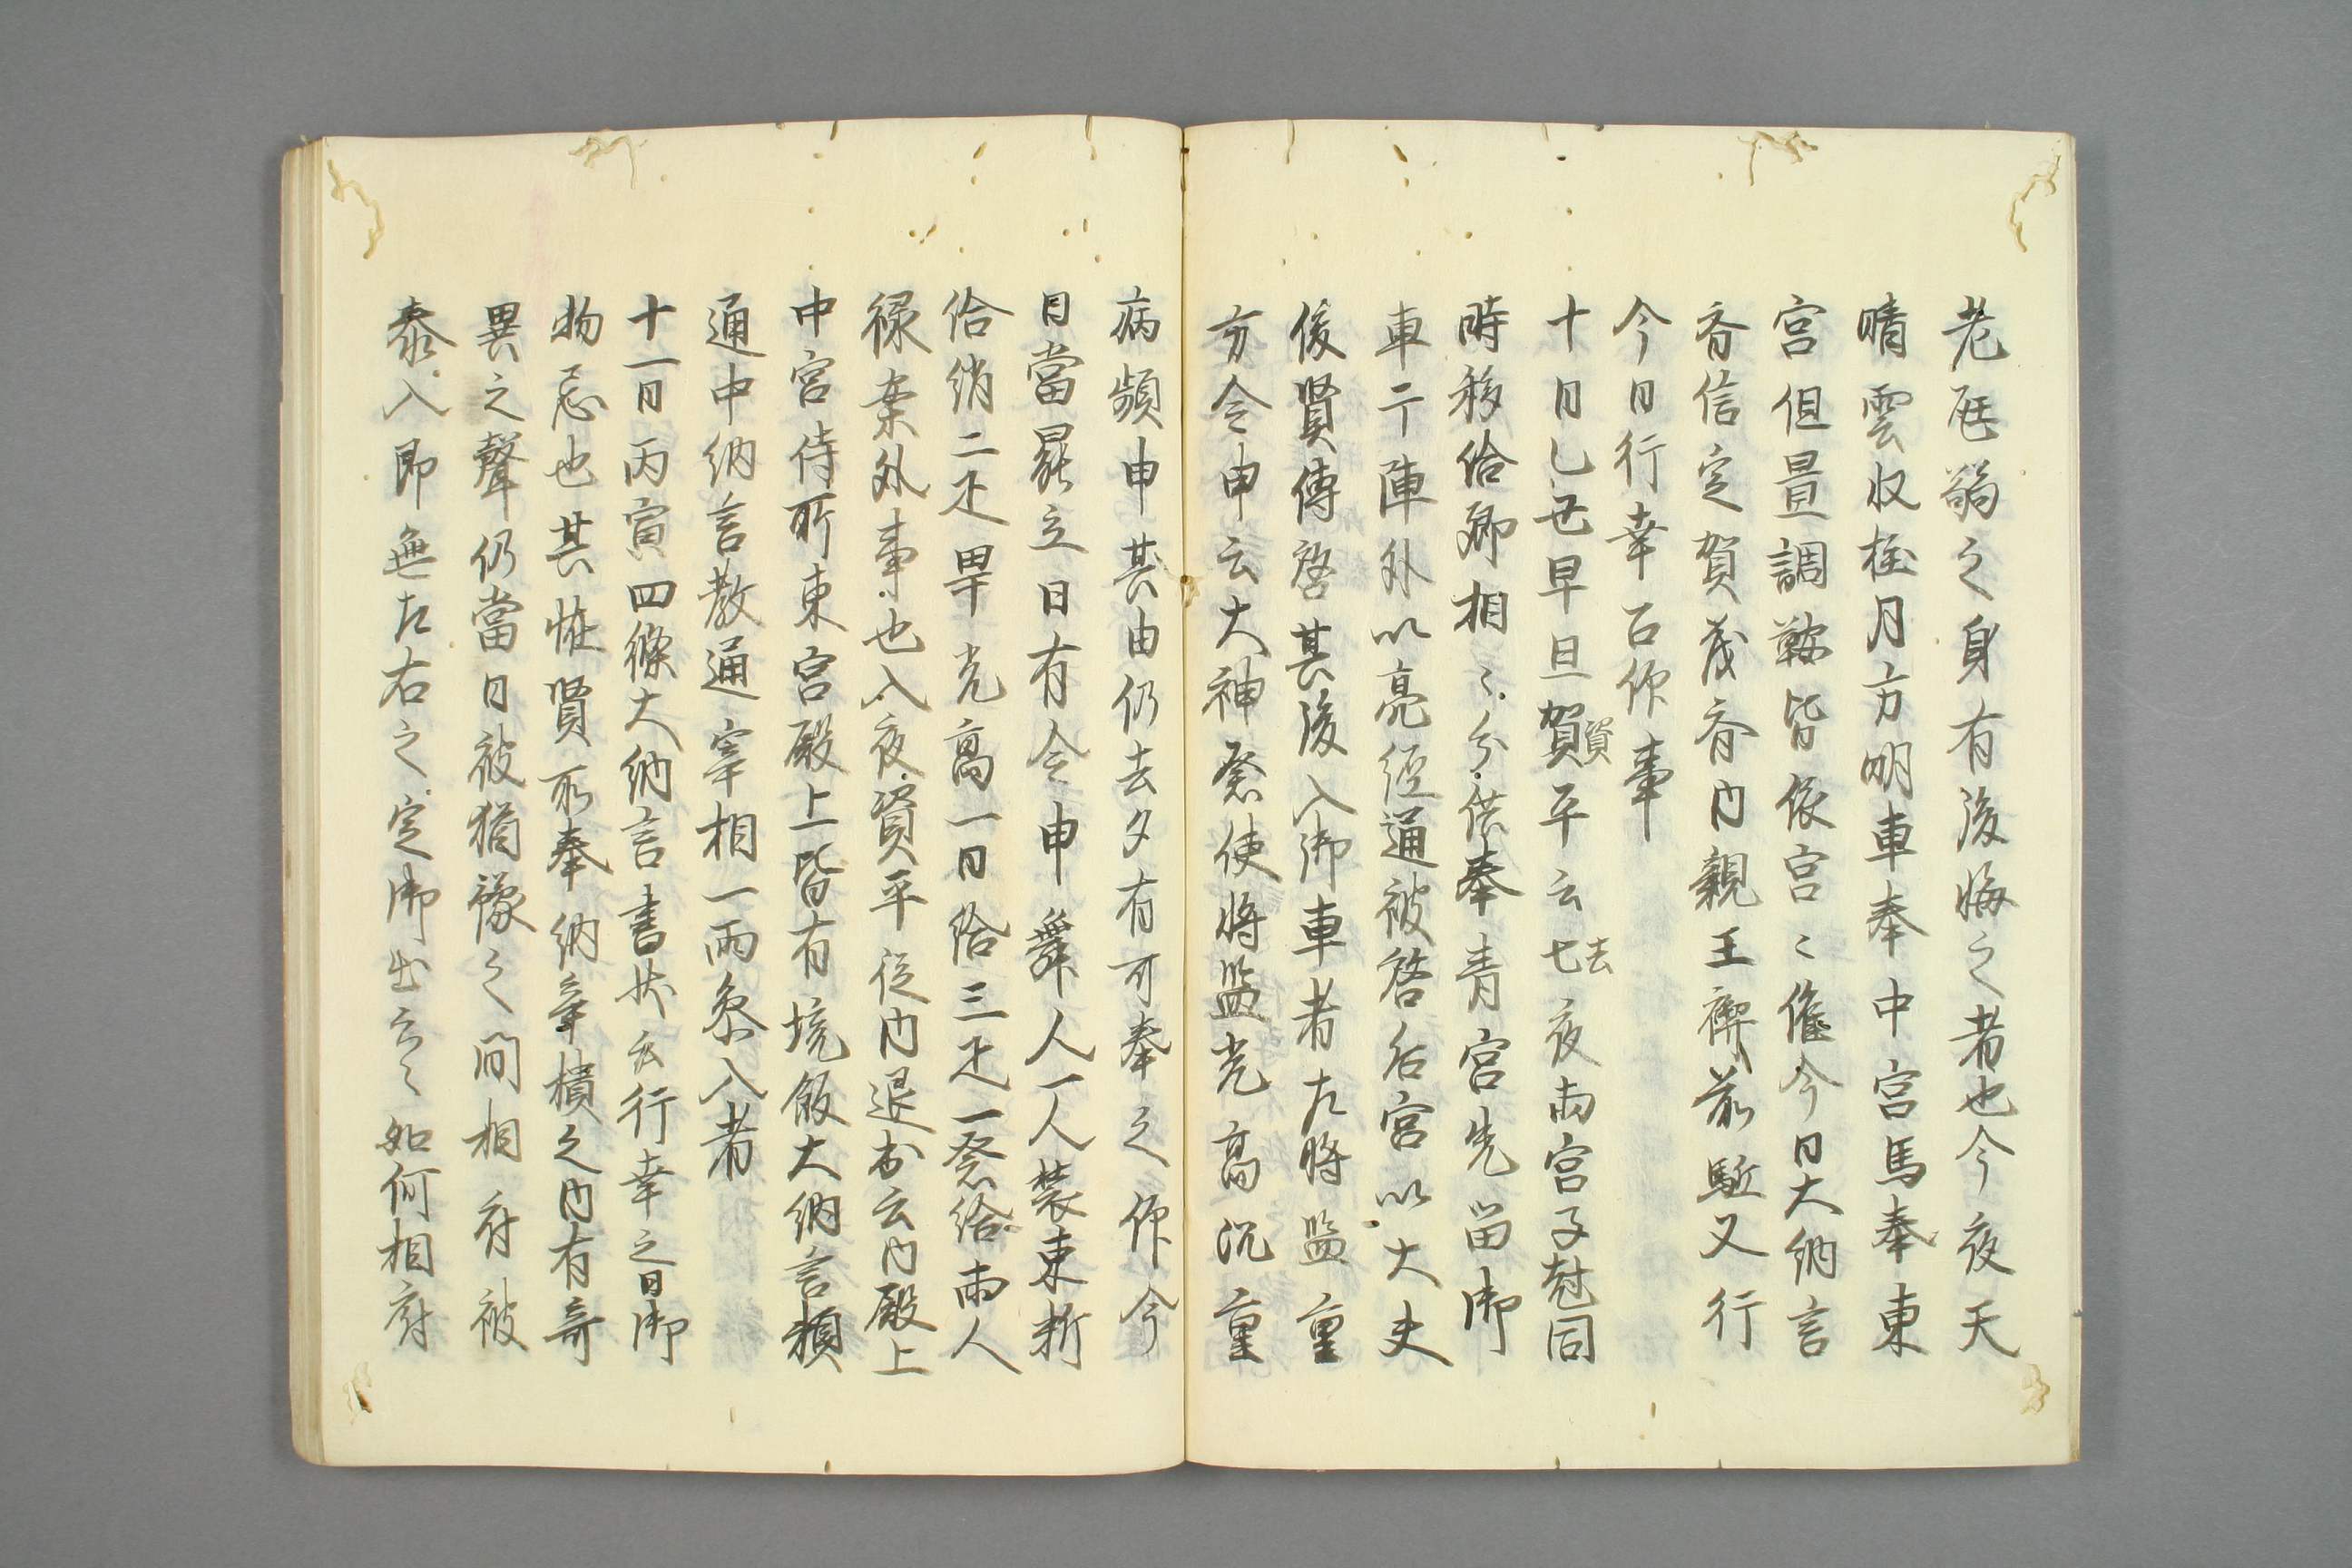 老尫弱之身有後悔之者也今夜天
晴雲収桂月方明車奉中宮馬奉東
宮但畳調鞍皆依宮〻催今日大納言
斉信定賀茂斉内親王禊前駈又行
今日行幸召仰事
十日乙丑早旦賀平云七夜両宮子尅同
資
去
時移給卿相〻分供奉青宮先留御
車于陣外以亮経通被啓后宮以大夫
俊賢傳啓其後入御車者左将監重
方令申云大神祭使将監光高沉重
病頻申其由仍去夕有可奉之仰今
日當罷立日有令申舞人一人装束新
給絹二疋畢光高一日給三疋一祭給両人
禄案外事也入夜資平従内退出云内殿上
中宮侍所東宮殿上皆有垸飯大納言頼
通中納言教通宰相一両参入者
十一日丙寅四條大納言書状云行幸之日御
物忌也其恠賢所奉納辛櫃之内有奇
異之聲仍當日被猶豫之間相府被
参入即無左右之定御出云〻如何相府